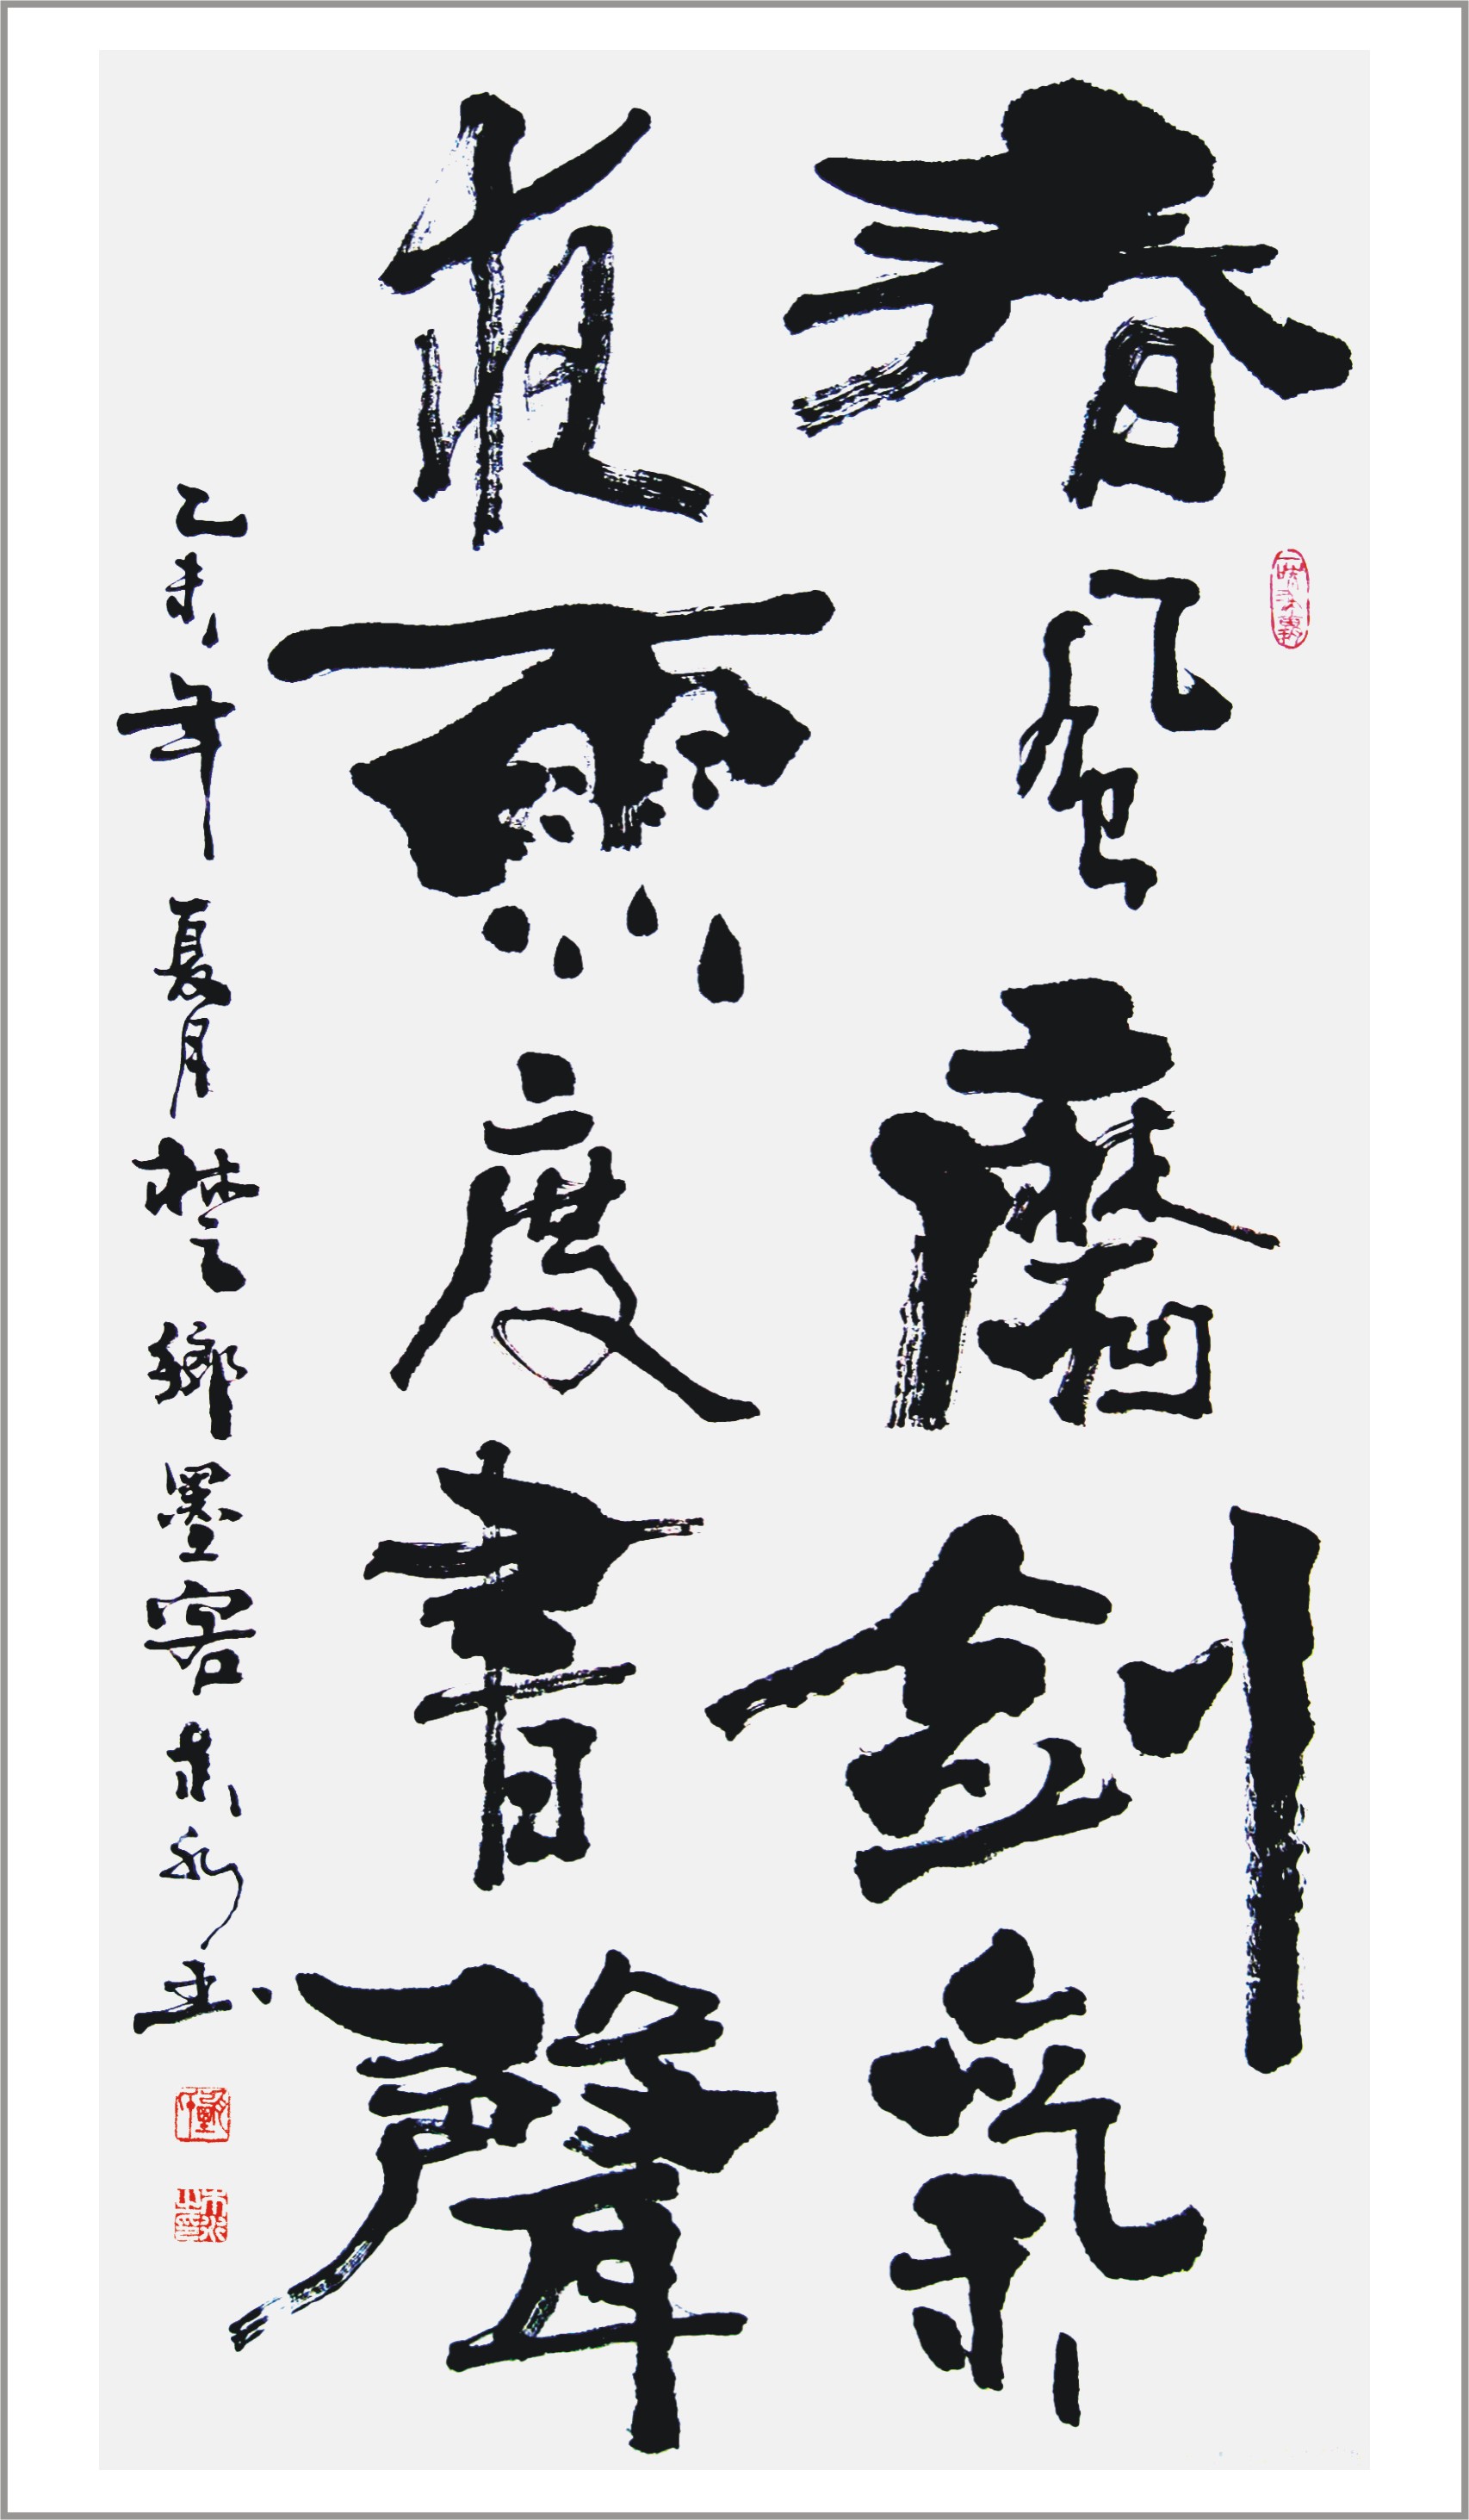 春風磨劍氣
夜雨度書聲
乙未年夏月楚鄉墨客朱永